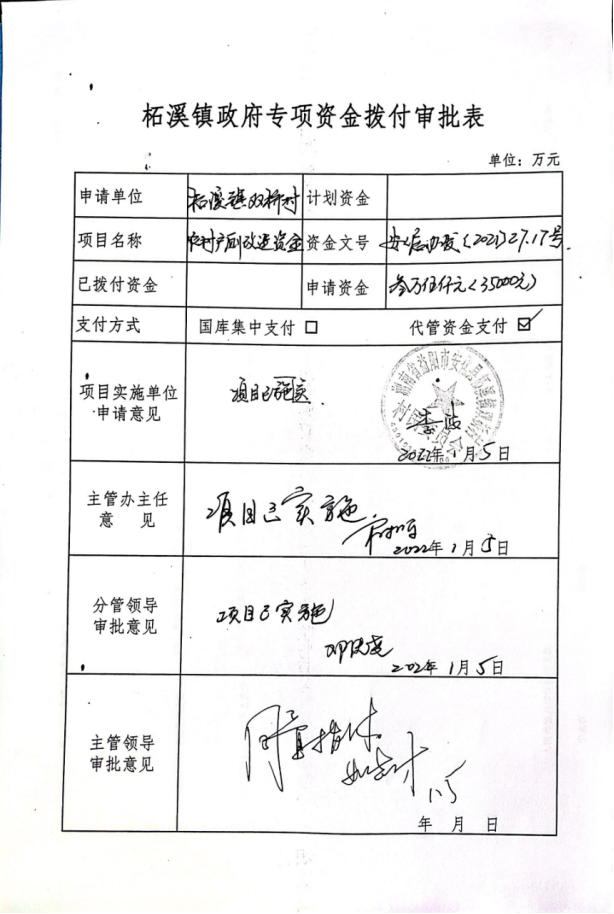 柘溪镇政府专项资金拨付审批表
单位：万元
申请单位 柘溪镇双桥村 计划资金
项目名称 农村户厕改造资金 资金文号 (2021)27.17号
已拨付资金 申请资金 叁万伍仟元(35000元)
支付方式 国库集中支付 □ 代管资金支付 ☑
项目实施单位
申请意见
项目已施实.
2022年1月5日
主管办主任
意 见
项目已实施.
2022年1月5日
分管领导
审批意见
项目已实施
2022年1月5日
主管领导
审批意见
1/5
年 月 日